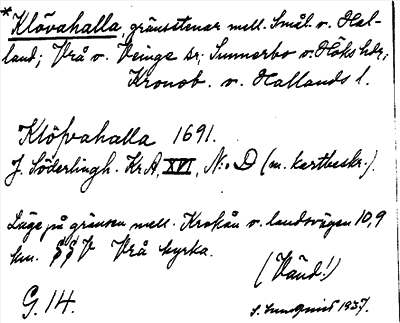 *Klövahalla, gränsstenar mell. Smål. o. Hal-
land; Vrå o. Veinge sr; Sunnerbo o. Höks hdr;
Kronob. o. Hallands l.
Klöfvahalla 1691.
J. Söderlingh. Kr.A, XVI, N:o D (m. kartbeskr.).
Läge på gränsen mell. Krokån o. landsvägen 10,9
km. SSV Vrå kyrka.
(Vänd!)
G. 14.
S. Sundquist 1937.